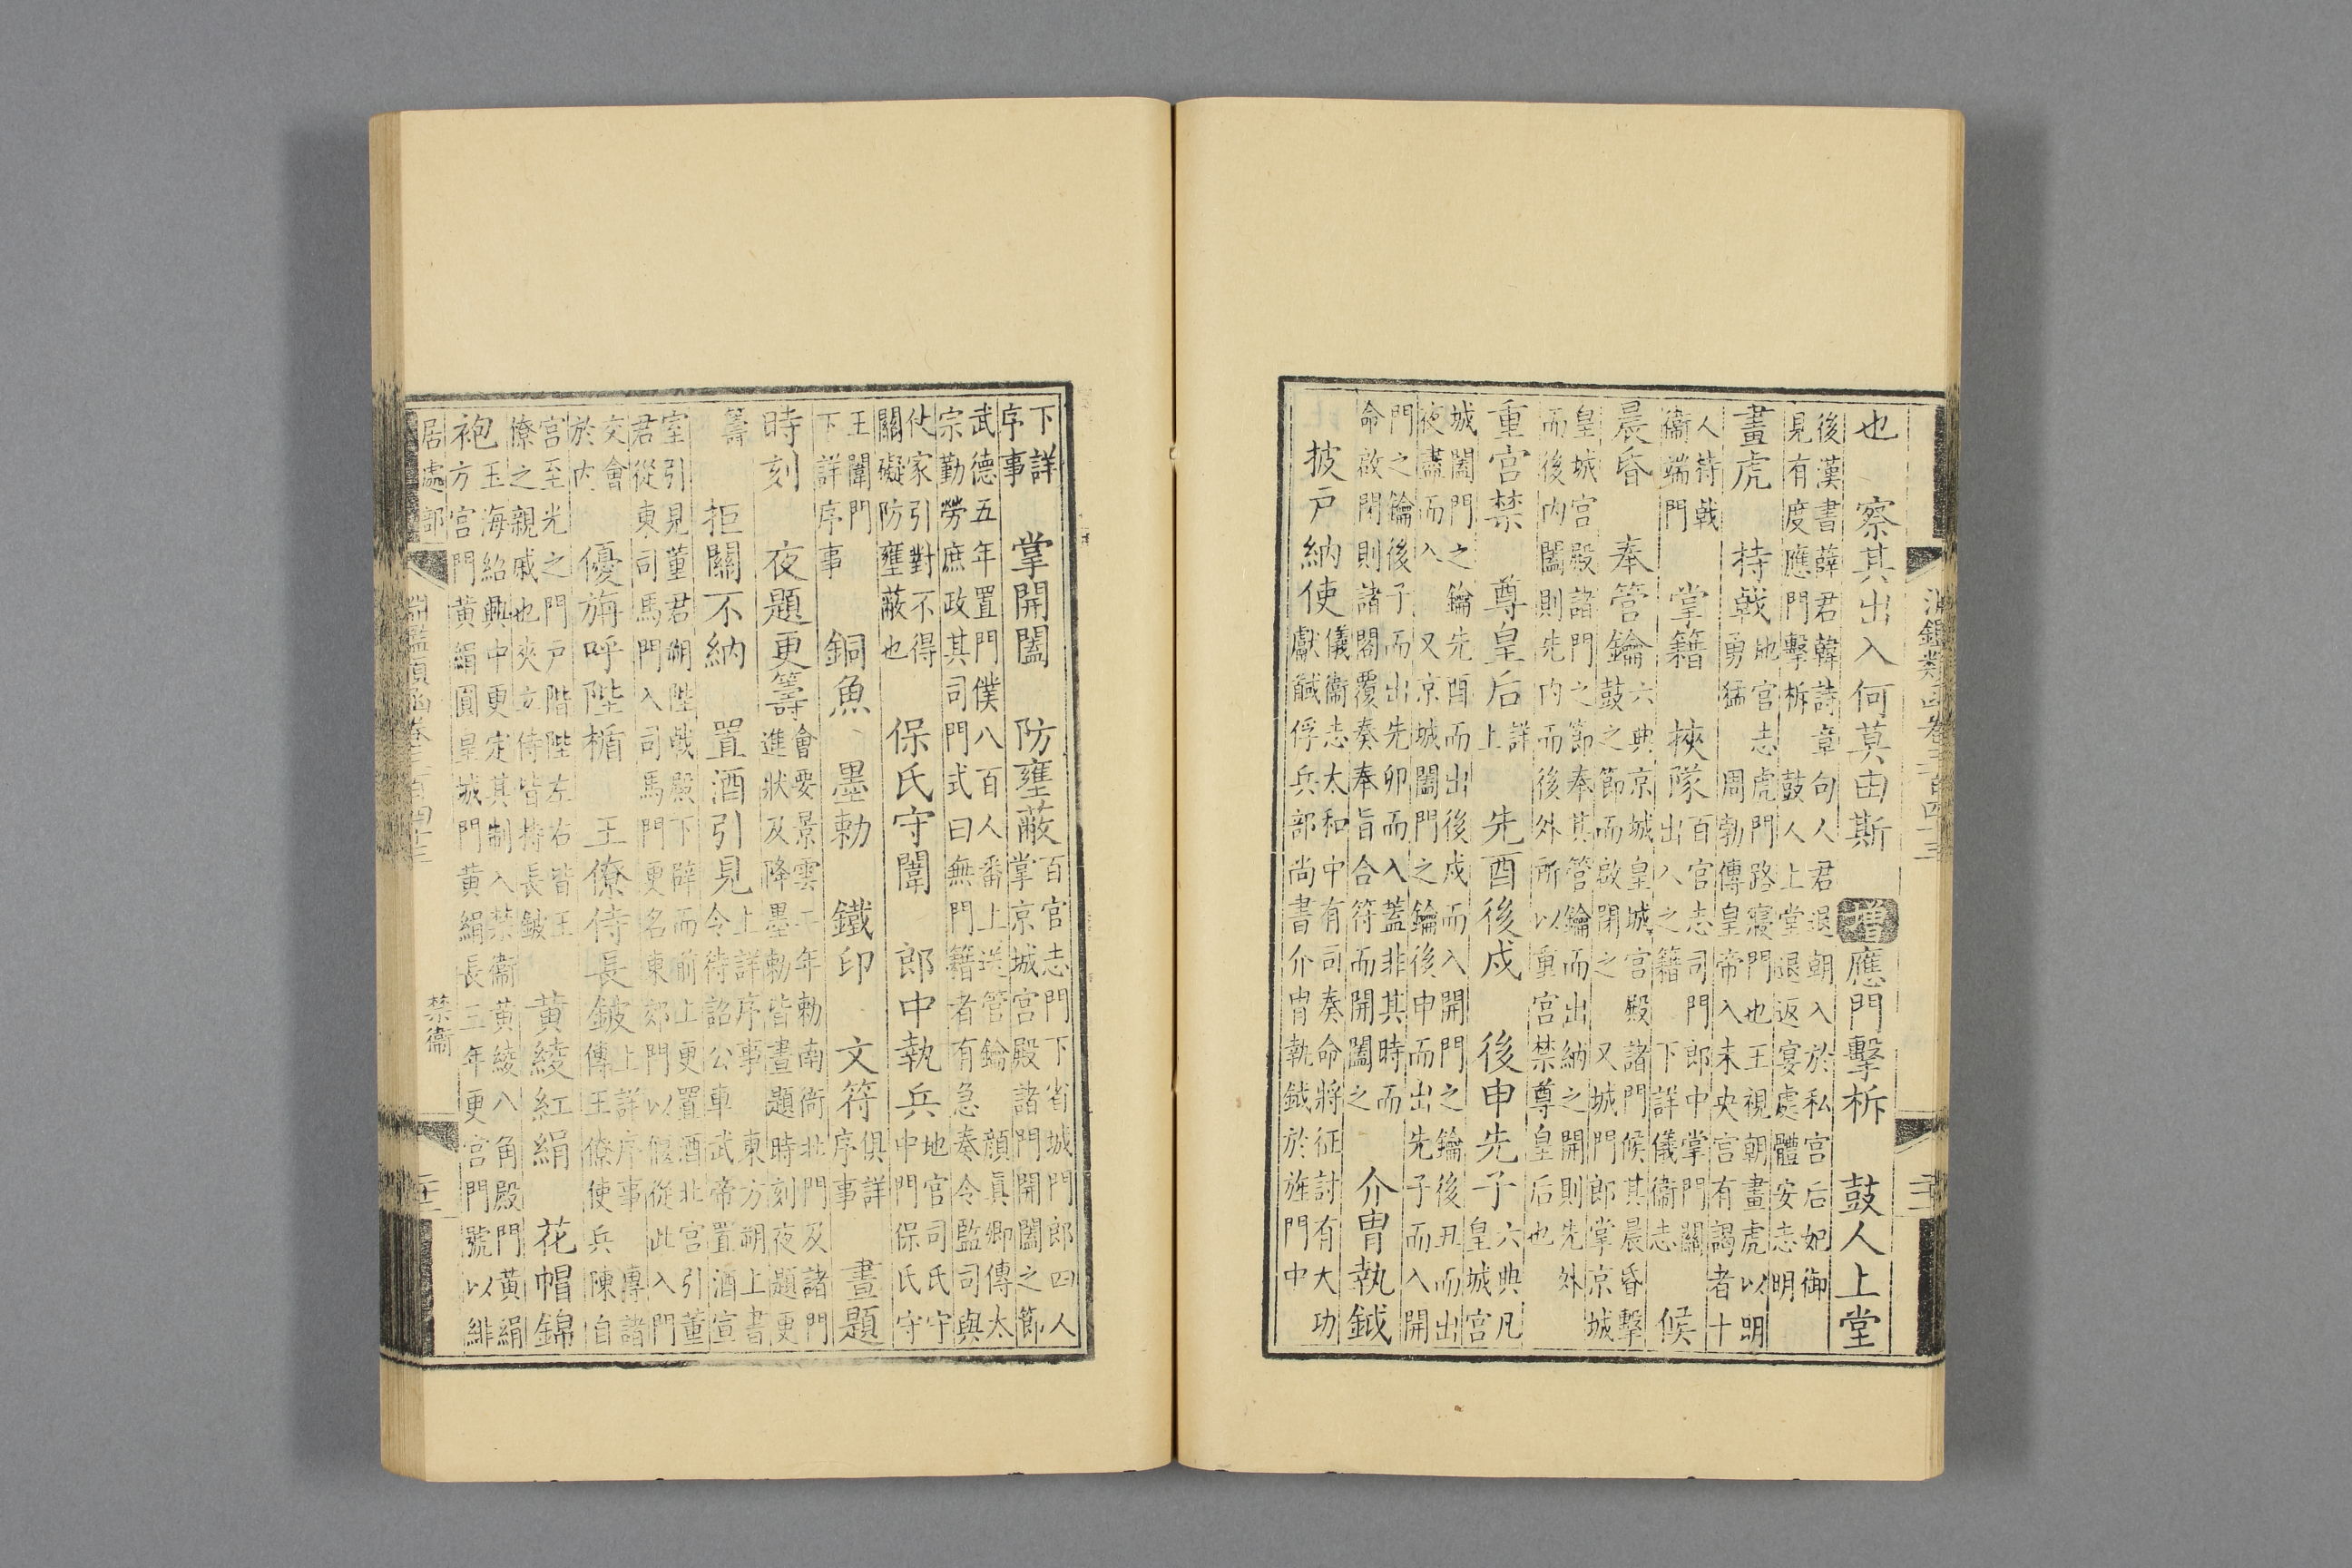 也　察其出入何莫由斯　增應門擊柝　鼓人上堂
後漢書薛君韓詩章句人君退朝入於私宮后妃御
見有度應門擊柝鼓人上堂退返宴處體安志明
畫虎　持戟
地官志虎門路寢門也王視朝畫虎以明
勇猛　周勃傳皇帝入未央宮有謁者十
人持戟
衞端門
掌籍　挾隊
百官志司門郎中掌門關
出入之籍　下詳儀衞志
候
晨昏　奉管鑰
六典京城皇城宮殿諸門候其晨昏擊
鼓之節而啟閉之　又城門郎掌京城
皇城宮殿諸門之節奉其管鑰而出納之開則先外
而後內闔則先內而後外所以重宮禁尊皇后也
重宮禁　尊皇后
詳
上
先酉後戌　後申先子
六典凡
皇城宮
城闔門之鑰先酉而出後戌而入開門之鑰後丑而出
夜盡而入　又京城闔門之鑰後申而出先子而入開
門之鑰後子而出先卯而入蓋非其時而
命啟閉則諸閤覆奏奉旨合符而開闔之
介胄執鉞
披戸納使
儀衞志太和中有司奏命將征討有大功
獻馘俘兵部尚書介胄執鉞於旌門中
下詳
序事
掌開闔　防壅蔽
百官志門下省城門郎四人
掌京城宮殿諸門開闔之節
武德五年置門僕八百人番上送管鑰　顔真卿傳太
宗勤勞庶政其司門式曰無門籍者有急奏令監司與
仗家引對不得
關礙防壅蔽也
保氏守闈　郎中執兵
地官司氏守
中門保氏守
王闈門
下詳序事
銅魚　墨勅　鐵印　文符
俱詳
序事
晝題
時刻　夜題更籌
會要景雲二年勅南衙北門及諸門
進狀及降墨勅皆晝題時刻夜題更
籌
拒關不納　置酒引見
上詳序事　東方朔上書
令待詔公車　武帝置酒宣
室引見董君朔陛戟殿下辟而前止更置酒北宮引董
君從東司馬門入司馬門更名東郊門以偃從此入門
交會
於内
優旃呼陛楯　王僚侍長鈹
上詳序事　專諸
傳王僚使兵陳自
宮至光之門戸階陛左右皆王
僚之親戚也夾立侍皆持長鈹
黃綾紅絹　花帽錦
袍
玉海紹興中更定其制入禁衞黃綾八角殿門黃絹
方宮門黃絹圓皇城門黃絹長三年更宮門號以緋
居處部
禁衞